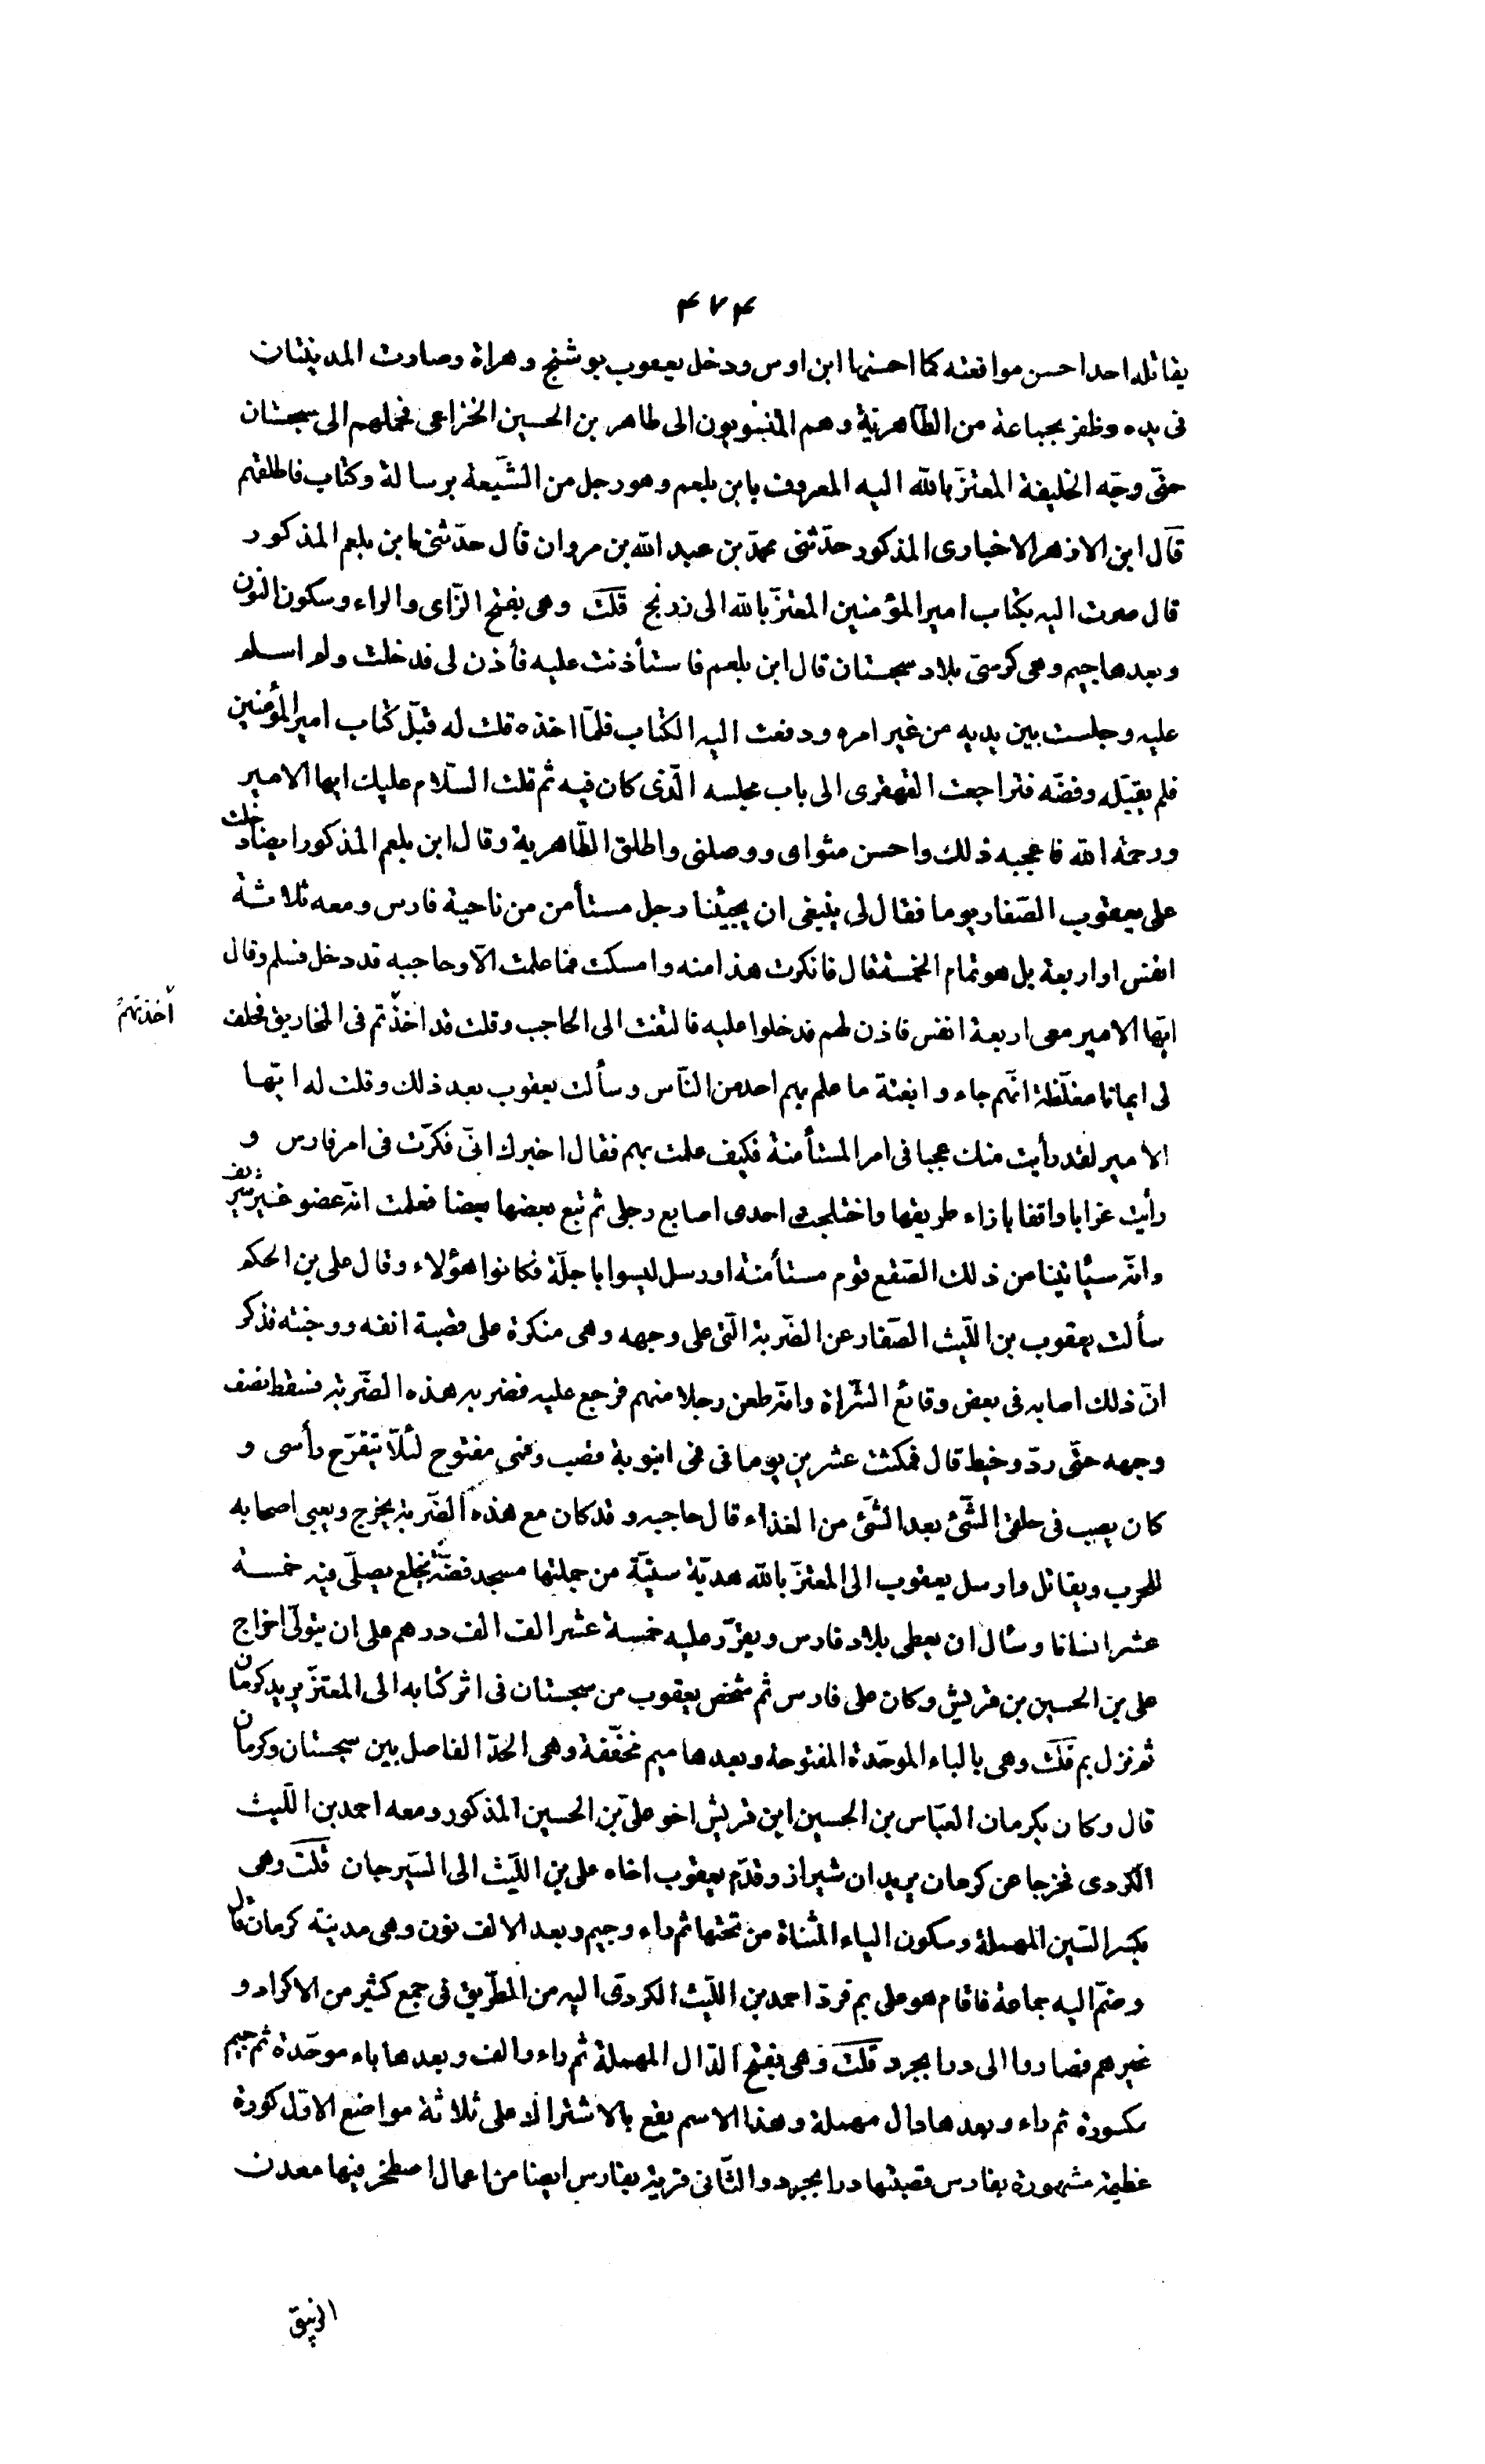 ۴۷۴
یقاتله احد احسن مواقعته کما احسنها ابن اوس ودخل یعقوب بوشنج وهراة وصارت المدینتان
فی یده وظفر بجماعة من الطّاهریّة وهم المنسوبون الی طاهر بن الحسین الخزاعی فحملهم الی سجستان
حتّی وجّه الخلیفة المعتزّ بالله الیه المعروف بابن بلعم وهو رجل من الشّیعة برسالة وکتاب فاطلقهم
قال ابن الازهر الاخباری المذکور حدّثنی محمّد بن عبد الله بن مروان قال حدّثنی ابن بلعم المذکور
قال صرت الیه بکتاب امیر المؤمنین المعتزّ بالله الی زرنج قلت وهی بفتح الزّای والراء وسکون النون
وبعدها جیم وهی کرسیّ بلاد سجستان قال ابن بلعم فاستأذنت علیه فأذن لی فدخلت ولم اسلم
علیه وجلست بین یدیه من غیر امره ودفعت الیه الکتاب فلمّا اخذه قلت له قبّل کتاب امیر المؤمنین
فلم یقبّله وفضّه فتراجعت القهقری الی باب مجلسه الّذی کان فیه ثم قلت السّلام علیك ایها الامیر
ورحمة الله فاعجبه ذلك واحسن مثوای ووصلنی واطلق الطّاهریة وقال ابن بلعم المذکور ایضا دخلت
علی یعقوب الصّفار یوما فقال لی ینبغی ان یجیئنا رجل مستأمن من ناحیة فارس ومعه ثلاثة
انفس او اربعة بل هو تمام الخمسة قال فانکرت هذا منه وامسکت فما علمت الّا وحاجبه قد دخل فسلم وقال
ایّها الامیر معی اربعة انفس فاذن لهم فدخلوا علیه فالتفت الی الحاجب وقلت قد اخذتم فی المخاریق فحلف
أخذتهمُ
لی ایمانا مغلّظة انّهم جاءوا بغتة ما علم بهم احد من النّاس وسألت یعقوب بعد ذلك وقلت له ایّها
الامیر لقد رأیت منك عجبا فی امر المستأمنة فکیف علمت بهم فقال اخبرك انّی فکرّت فی امر فارس و
رأیت غرابا واقفا بازاء طریقها واختلجت احدی اصابع رجلی ثم تبع بعضها بعضا فعلمت انّه عضو غیر شریف
وانّه سیأتینا من ذلك الصّقع قوم مستأمنة او رسل لیسوا باجلّة فکانوا هؤلاء وقال علی بن الحکم
سألت یعقوب بن اللّیث الصّفار عن الضّربة الّتی علی وجهه وهی منکرة علی قصبة انفه ووجنته فذکر
انّ ذلك اصابه فی بعض وقائع الشّراة وانّه طعن رجلا منهم فرجع علیه فضربه هذه الضّربة فسقط نصف
وجهه حتّی ردّ وخیط قال فمکثت عشرین یوما فی فمی انبوبة قصب وفمی مفتوح لئلّا یتقرّح رأسی و
کان یصب فی حلقی الشّیء بعد الشّیء من الغذاء قال حاجبه وقد کان مع هذه الضّربة یخرج ویعبی اصحابه
للحرب ویقاتل وارسل یعقوب الی المعتزّ بالله هدیّة سنیّة من جملتها مسجد فضّة بخلع یصلّی فیه خمسة
عشر انسانا وسأل ان یعطی بلاد فارس ویقرّر علیه خمسة عشر الف الف درهم علی ان یتولّی اخراج
علی بن الحسین بن قریش وکان علی فارس ثم شخص یعقوب من سجستان فی اثر کتابه الی المعتزّ یرید کرمان
ثم نزل بم قلت وهی بالباء الموحّدة المفتوحة وبعدها میم مخفّفة وهی الحدّ الفاصل بین سجستان وکرمان
قال وکان بکرمان العبّاس بن الحسین ابن قریش اخو علیّ بن الحسین المذکور ومعه احمد بن اللّیث
الکردی فخرجا عن کرمان یریدان شیراز وقدّم یعقوب اخاه علی بن اللّیث الی السّیرجان قلت وهی
بکسر السّین المهملة وسکون الیاء المثنّاة من تحتها ثم راء وجیم وبعد الالف نون وهی مدینة کرمان قال
وضمّ الیه جماعة فاقام هو علی بم فردّ احمد بن اللّیث الکردیّ الیه من الطّریق فی جمع کثیر من الاکراد و
غیرهم فصاروا الی درابجرد قلت وهی بفتح الدّال المهملة ثم راء والف وبعدها باء موحّدة ثم جیم
مکسورة ثم راء وبعدها دال مهملة وهذا الاسم یقع بالاشتراك علی ثلاثة مواضع الاوّل کورة
عظیمة مشهورة بفارس قصبتها درابجرد والثّانی قریة بفارس ایضا من اعمال اصطخر فیها معدن
الزئبق